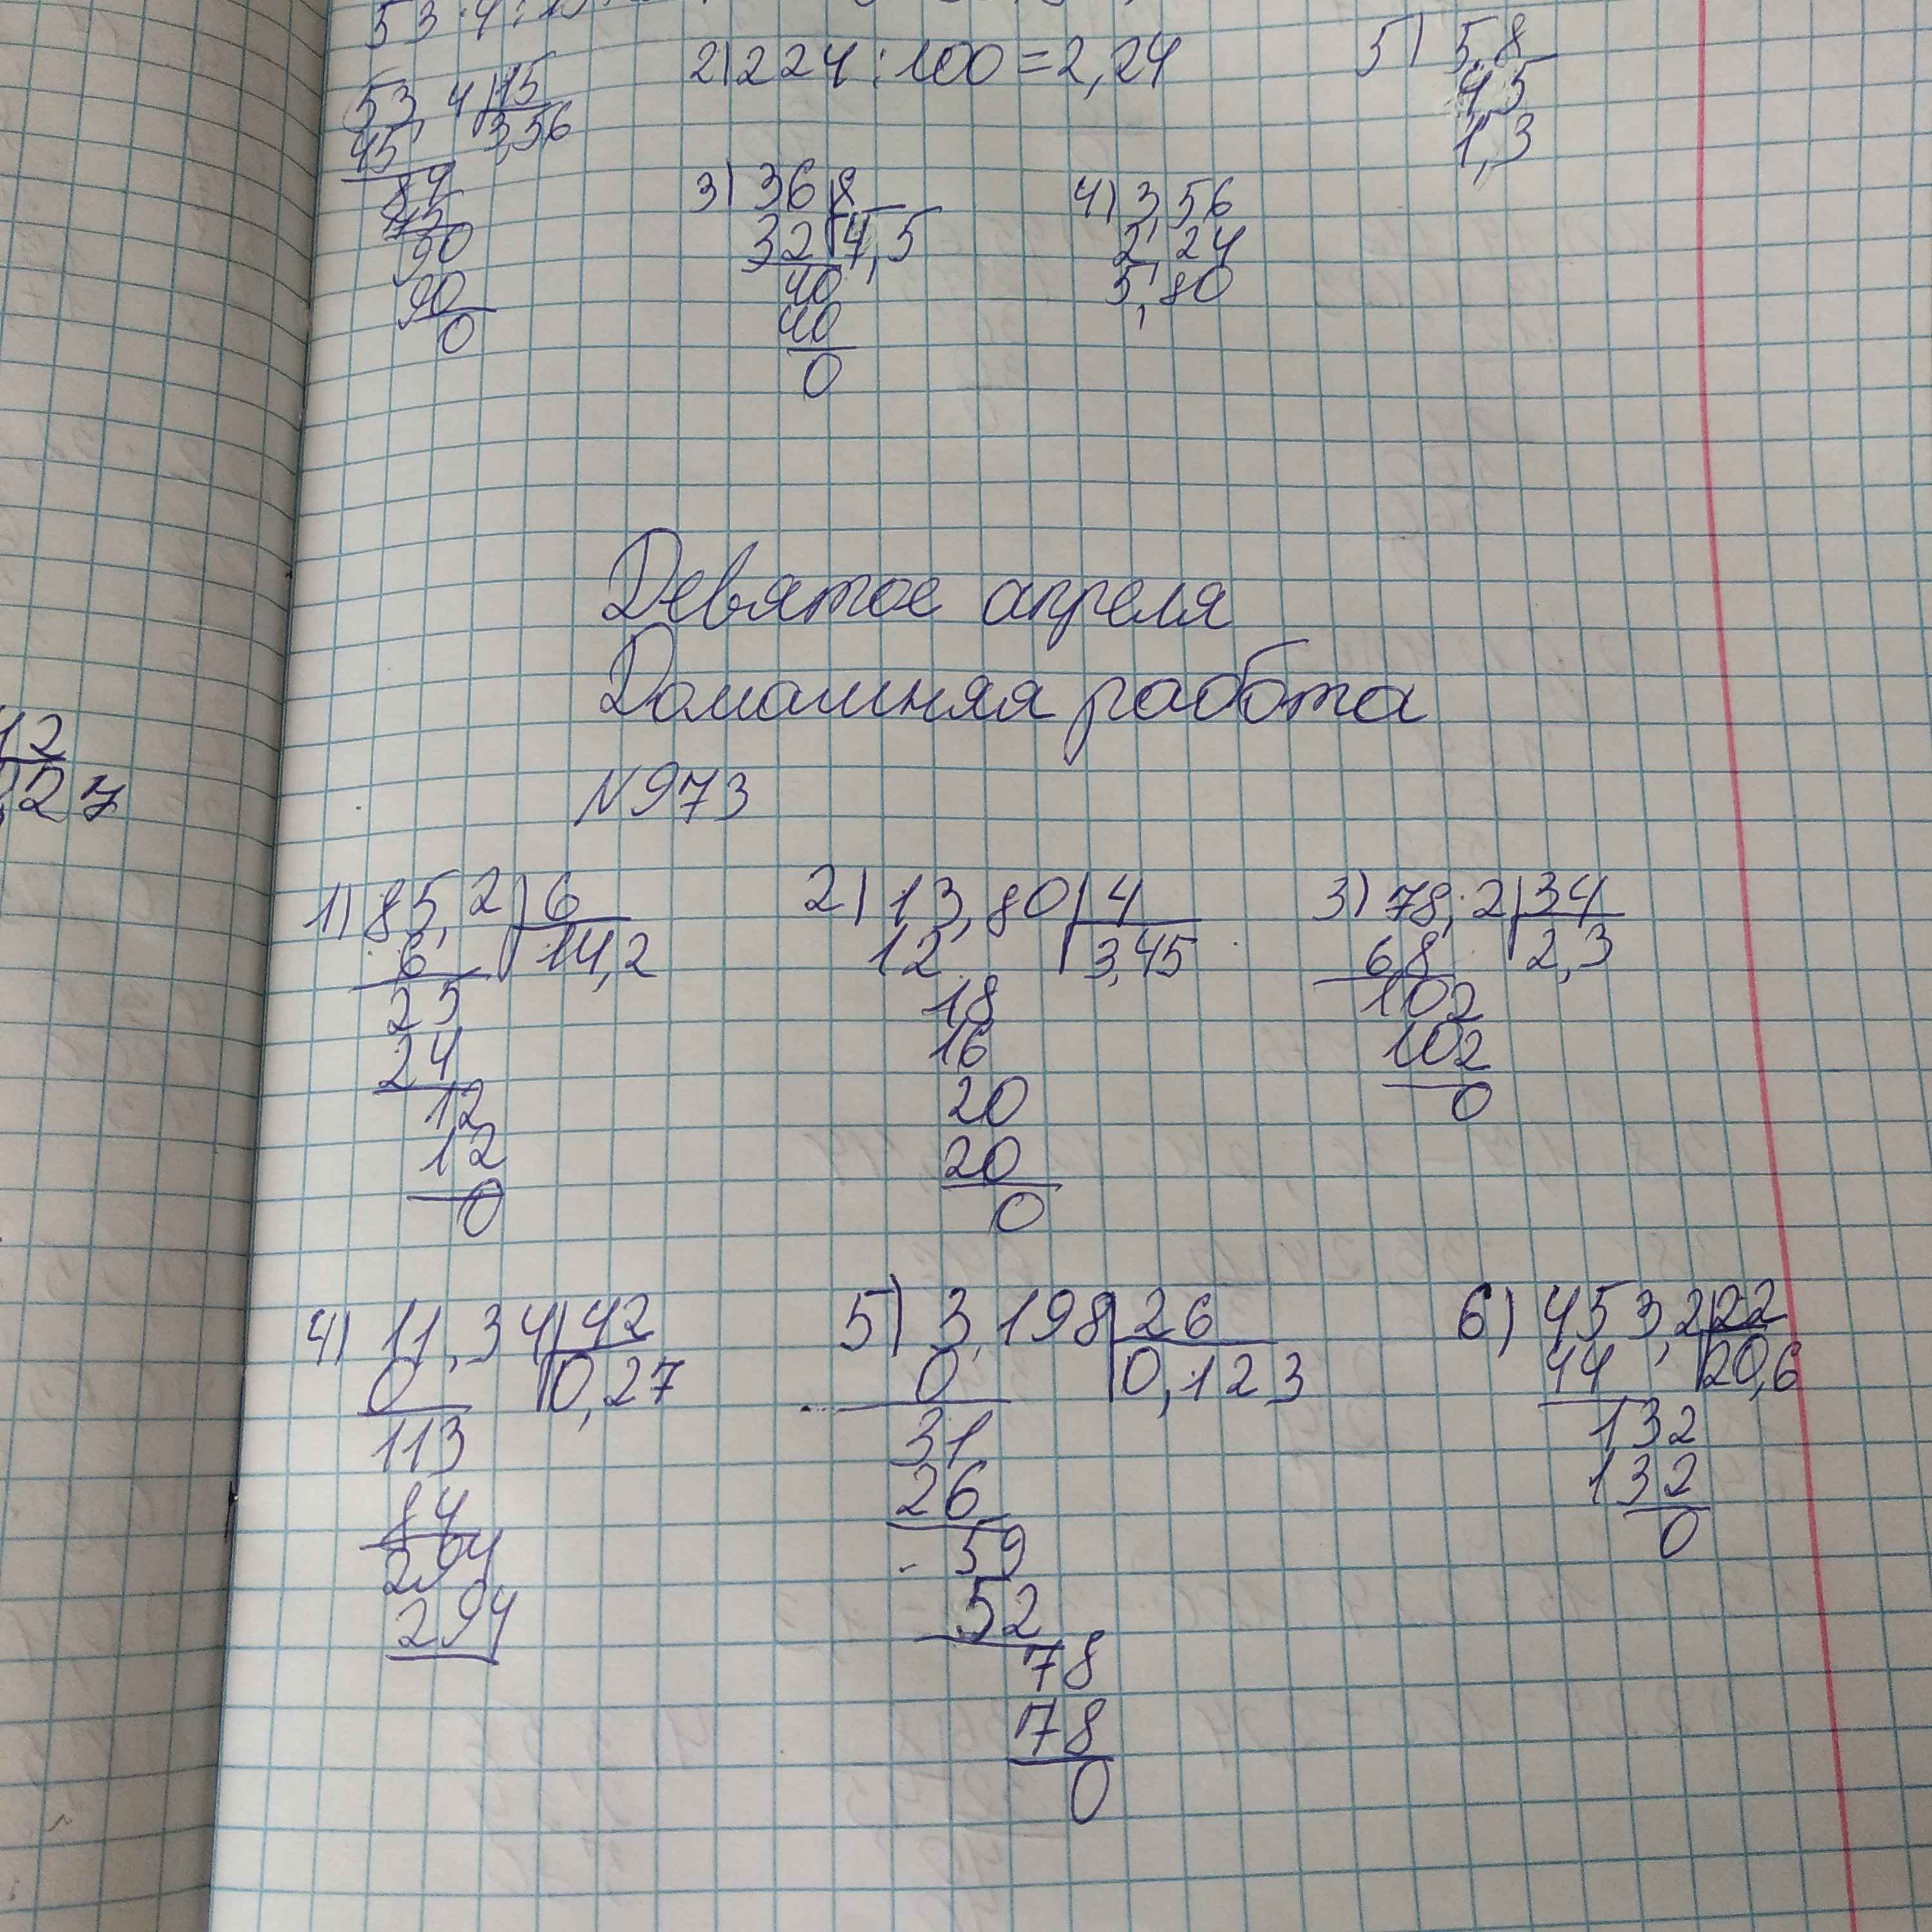 53,4:15
2) 224:100=2,24
5) 5,8
4,5
1,3
53,4 15
45 3,56
84
75
90
90
0
3) 36 8
32 4,5
40
40
0
4) 3,56
2,24
5,80
Девятое апреля
Домашняя работа
12
27
N973
1) 85,2 6
6 14,2
25
24
12
12
0
2) 13,80 4
12 3,45
18
16
20
20
0
3) 78,2 34
68 2,3
102
102
0
4) 11,34 42
0 0,27
113
84
294
294
5) 3,198 26
0 0,123
31
26
59
52
78
78
0
6) 453,2 22
44 20,6
132
132
0